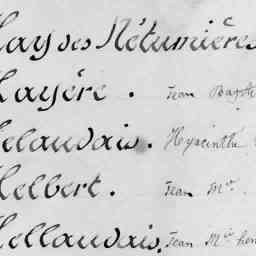 Hay des Nétumières
Hayère. Jean Bapti
Helaudais. Hyacinthe
Helbert. Jean Mie.
Hellaudais. Jean Mie hen